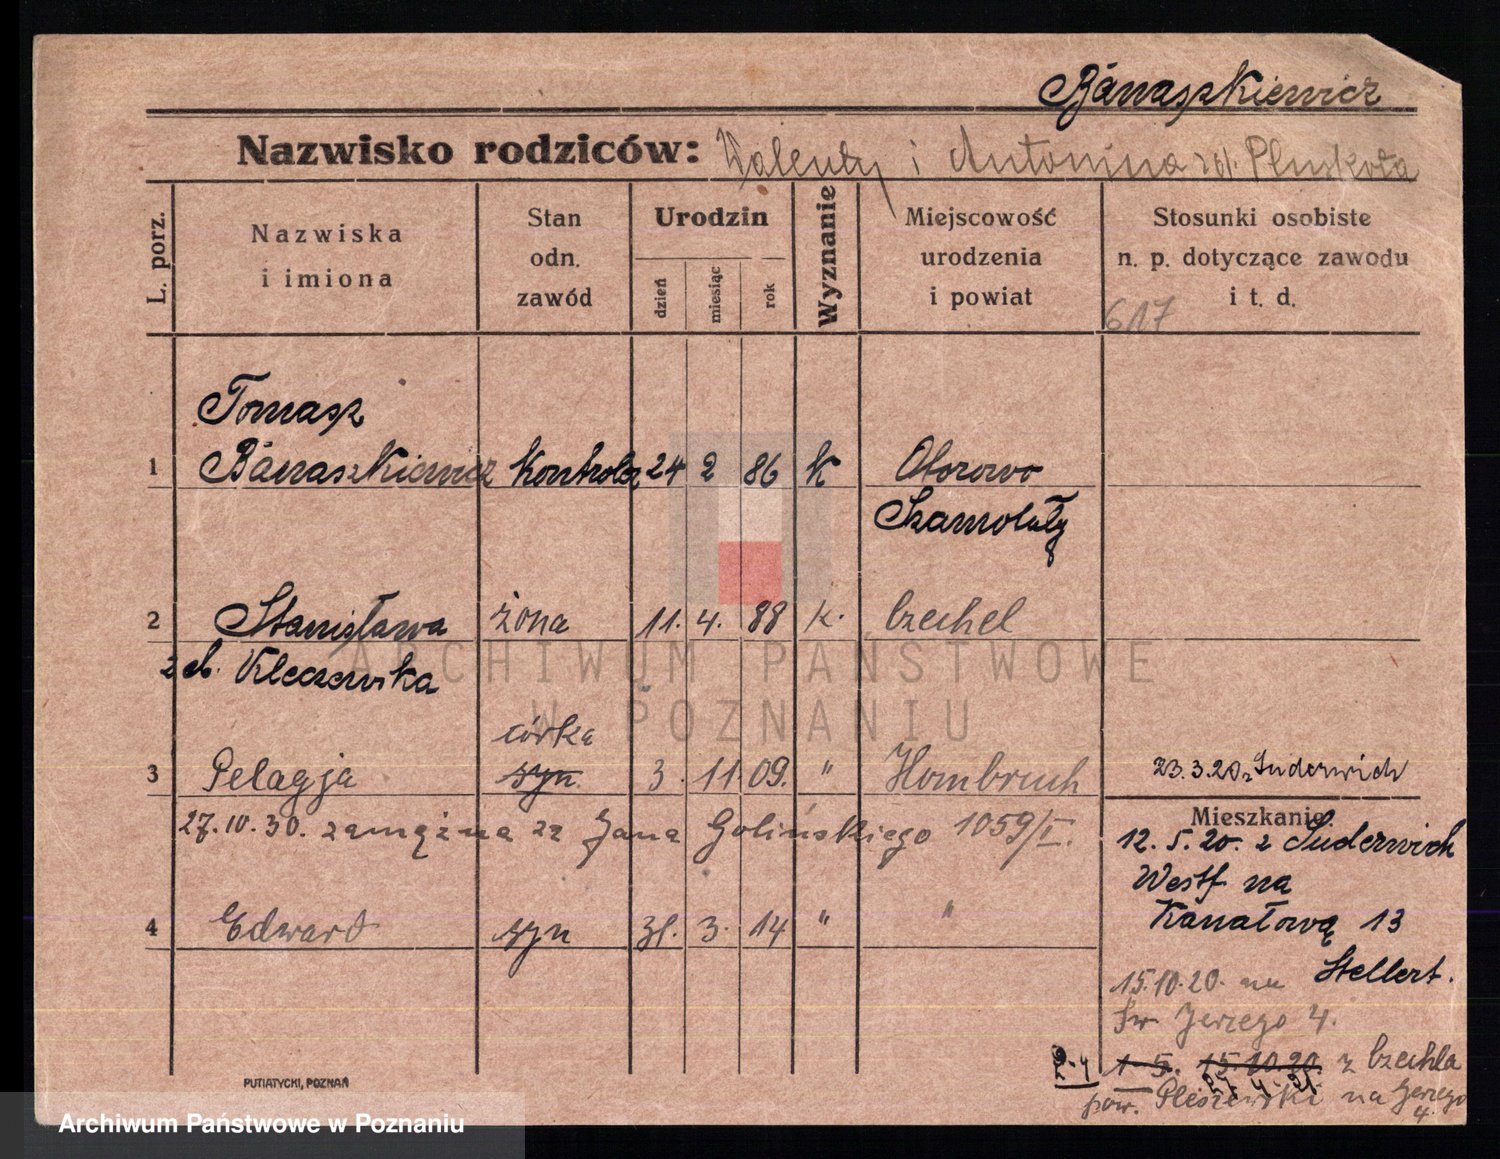 Banaszkiewicz
Nazwisko rodziców: Walenty i Antonina zd. Pluskota
L. porz.
Nazwiska
i imiona
Stan
odn.
zawód
Urodzin
dzień
miesiąc
rok
Wyznanie
Miejscowość
urodzenia
i powiat
Stosunki osobiste
n. p. dotyczące zawodu
i t. d.
617
Tomasz
1 Banaszkiewicz Kontroler 24 2 86 K Otorowo
Szamotuły
2 Stanisława żona 11. 4. 88 k. Czechel
z d. Kleczewska
córka
3 Pelagja syn 3. 11. 09. " Hombruch 23.3.20 z Suderwich
27.10.30. zamężna za Jana Golińskiego 1059/I.
Mieszkanie
12. 5. 20. z Suderwich
Westf. na
Kanałową 13
4 Edward syn 31. 3. 14 " "
Stellert.
15.10.20. na
Św Jerzego 4.
2.4 1 5. 15.10.20. z Czechla
27 4 21
pow. Pleszewski na Jerzego
4.
PUTIATYCKI, POZNAŃ
ARCHIWUM PAŃSTWOWE
W POZNANIU
Archiwum Państwowe w Poznaniu